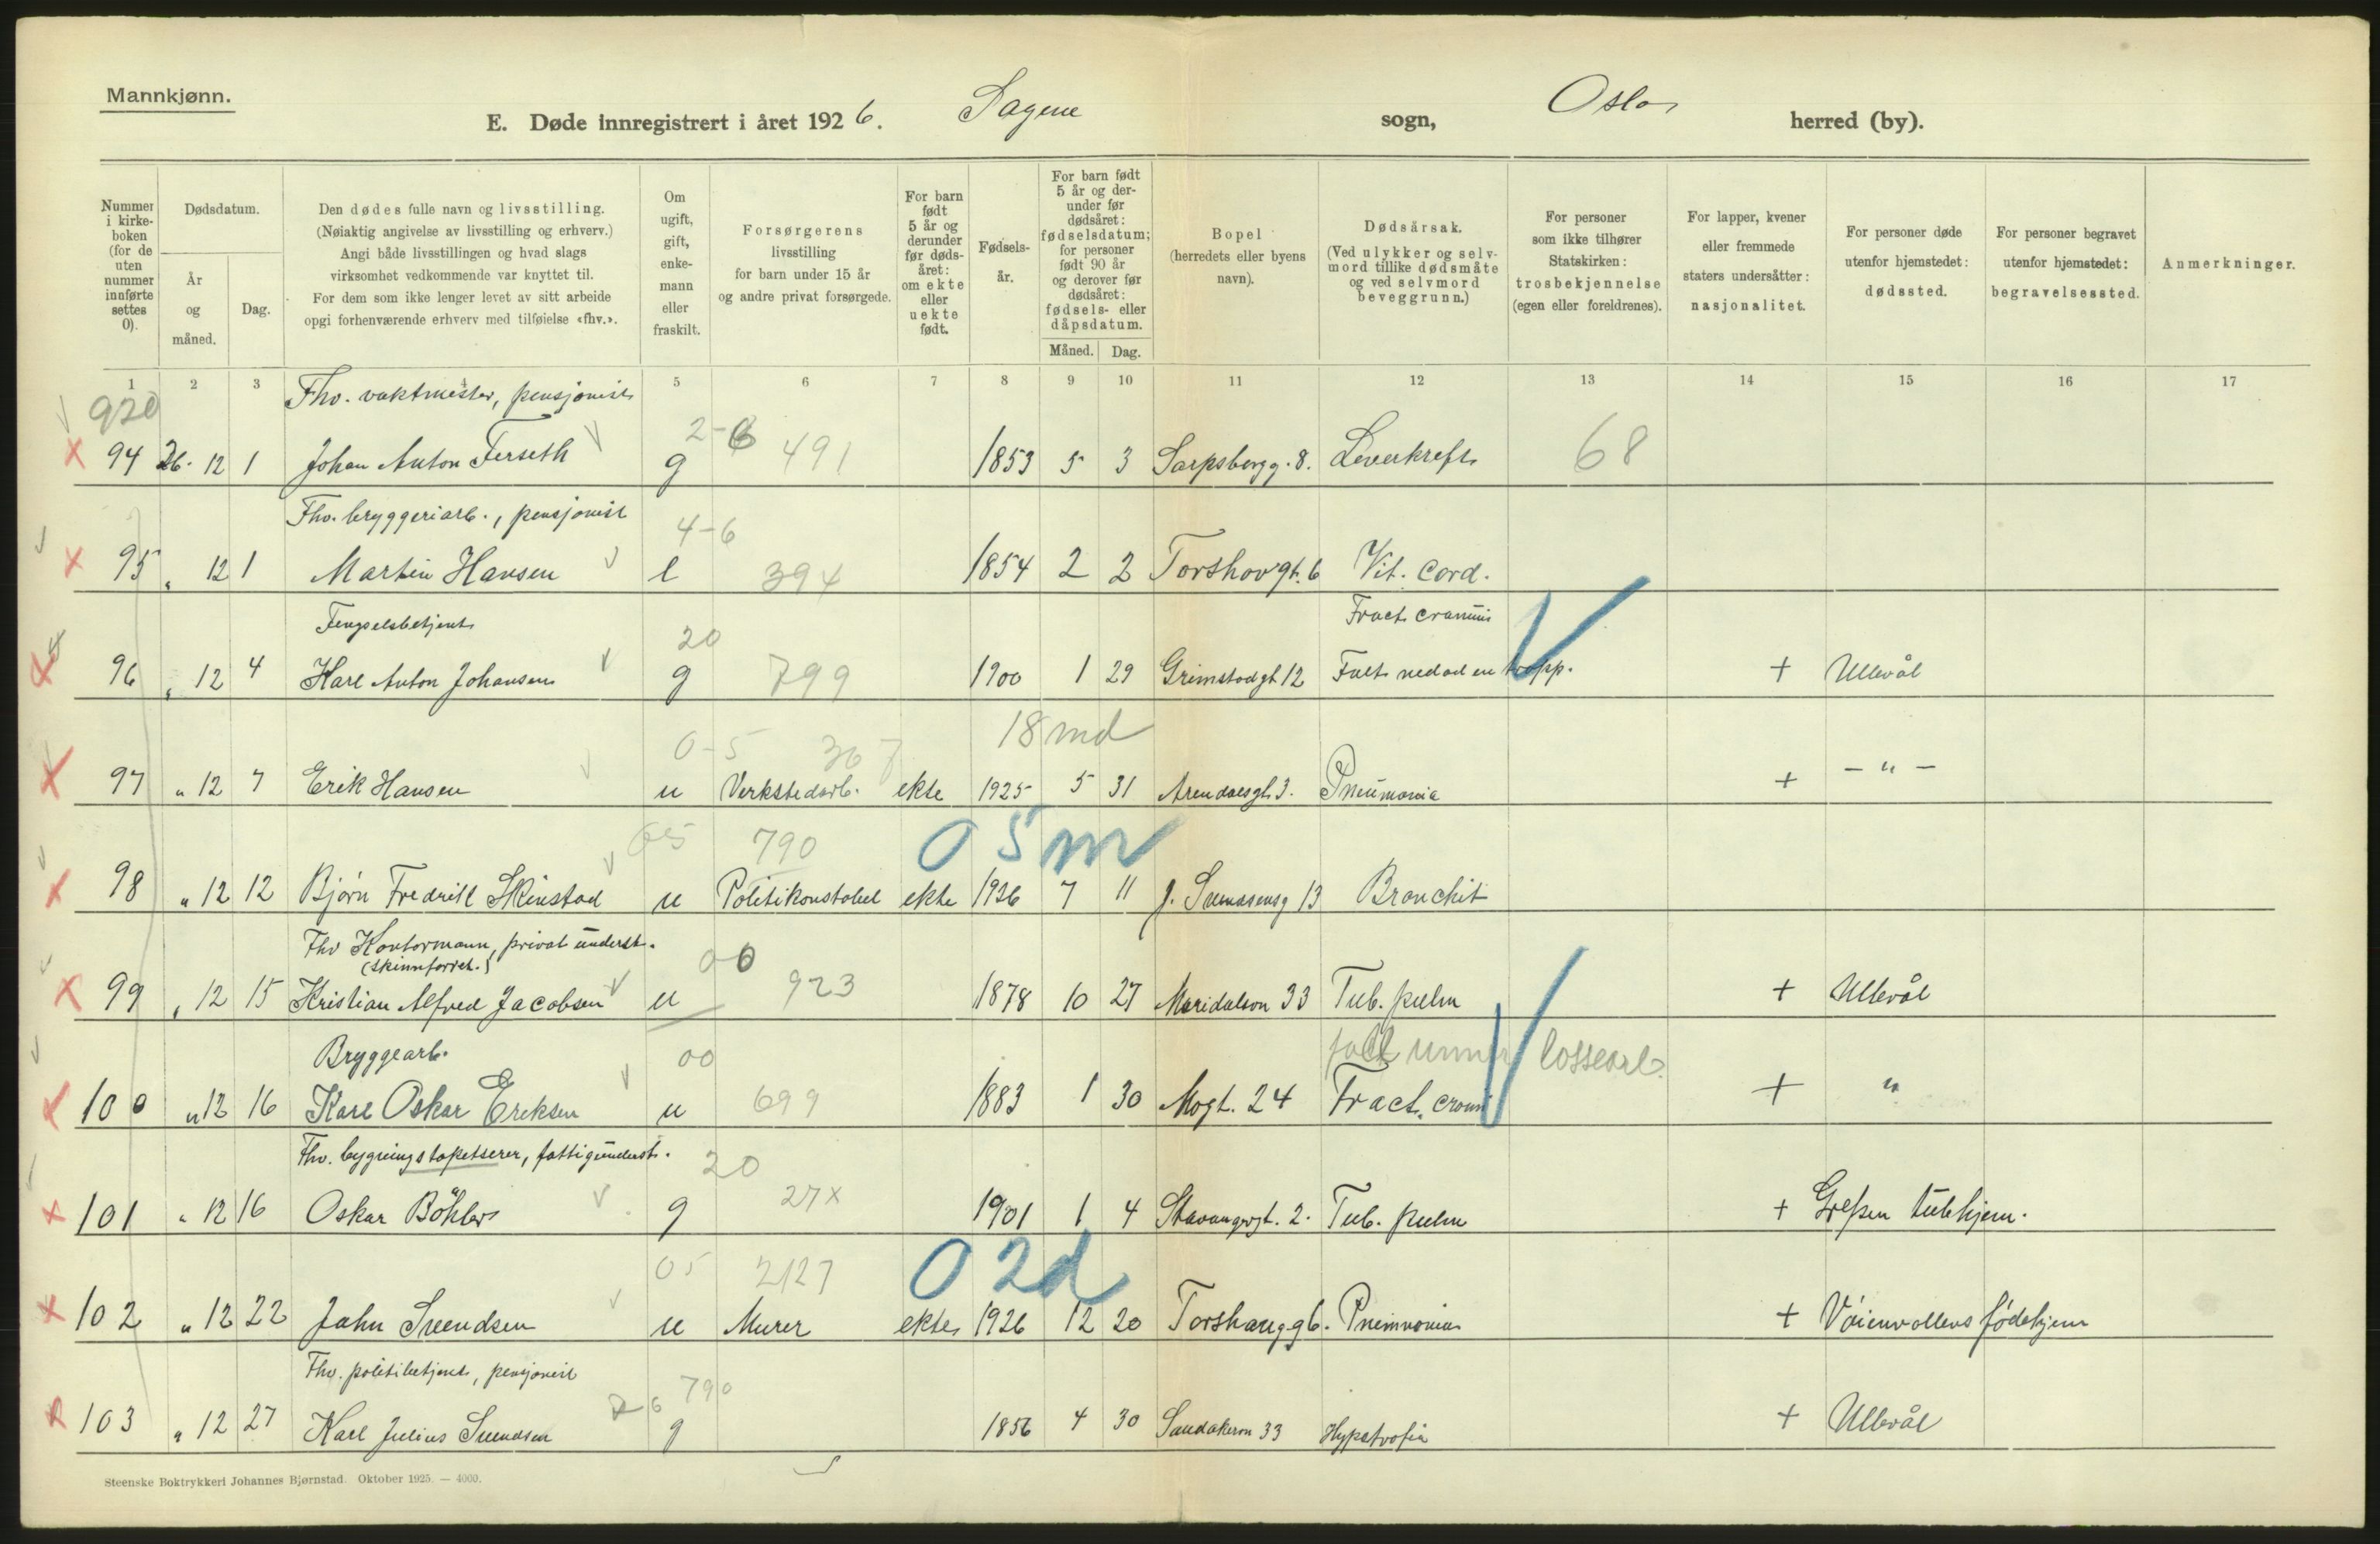 Mannkjønn.
E. Døde innregistrert i året 1926. Sagene sogn, Oslo herred (by).
Nummer i kirkeboken (for de uten nummer innførte settes 0).
Dødsdatum.
År og måned.
Dag.
Den dødes fulle navn og livsstilling.
(Nøiaktig angivelse av livsstilling og erhverv.)
Angi både livsstillingen og hvad slags
virksomhet vedkommende var knyttet til.
For dem som ikke lenger levet av sitt arbeide
opgi forhenværende erhverv med tilføielse «fhv.».
Om ugift, gift, enkemann eller fraskilt.
Forsørgerens livsstilling for barn under 15 år og andre privat forsørgede.
For barn født 5 år og derunder før dødsåret: om ekte eller uekte født.
Fødselsår.
For barn født 5 år og derunder før dødsåret: fødselsdatum; for personer født 90 år og derover før dødsåret: fødsels- eller dåpsdatum.
Måned. Dag.
Bopel (herredets eller byens navn).
Dødsårsak.
(Ved ulykker og selvmord tillike dødsmåte og ved selvmord beveggrunn.)
For personer som ikke tilhører Statskirken: trosbekjennelse (egen eller foreldrenes).
For lapper, kvener eller fremmede staters undersåtter: nasjonalitet.
For personer døde utenfor hjemstedet: dødssted.
For personer begravet utenfor hjemstedet: begravelsessted.
Anmerkninger.
1 2 3 4 5 6 7 8 9 10 11 12 13 14 15 16 17
920 Fhv. vaktmester, pensjonist 2-6 491 68
94 26. 12 1 Johan Anton Ferseth g 1853 5 3 Sarpsborgg. 8. Leverkreft
Fhv. bryggeriarb., pensjonist 4-6 394
95 " 12 1 Martin Hansen e 1854 2 2 Torshovgt. 6 Vit. cord.
Fengselsbetjent 20 799 Fract. cranii
96 " 12 4 Karl Anton Johansen g 1900 1 29 Grimstadgt 12 Falt ned ad en trapp. + Ullevål
0-5 367 18 md
97 " 12 7 Erik Hansen u Verkstedarb. ekte 1925 5 31 Arendalsgt. 3. Pneumonia + - " -
05 790 0 5 m
98 " 12 12 Bjørn Fredrik Skinstad u Politikonstabel ekte 1926 7 11 J. Svendsensg 13 Bronchit
Fhv Kontormann, privat underst.
(skinnforret.) 00 923
99 " 12 15 Kristian Alfred Jacobsen u 1878 10 27 Maridalsvn 33 Tub. pulm + Ullevål
Bryggearb. 00 699 lossearb.
100 " 12 16 Karl Oskar Eriksen u 1883 1 30 Mogt. 24 Fract. cranii + "
Fhv. bygningstapetserer, fattigunderst. 20 27x
101 " 12 16 Oskar Böhler g 1901 1 4 Stavangergt. 2. Tub. pulm + Grefsen tubhjem.
05 2127 0 2d
102 " 12 22 John Svendsen u Murer ekte 1926 12 20 Torshaugg 6. Pneumonia + Vøienvollens fødehjem
Fhv. politibetjent, pensjonist 6 790
103 " 12 27 Karl Julius Svendsen g 1856 4 30 Sandakervn 33 Hypatrofia + Ullevål
Steenske Boktrykkeri Johannes Bjørnstad. Oktober 1925. — 4000.